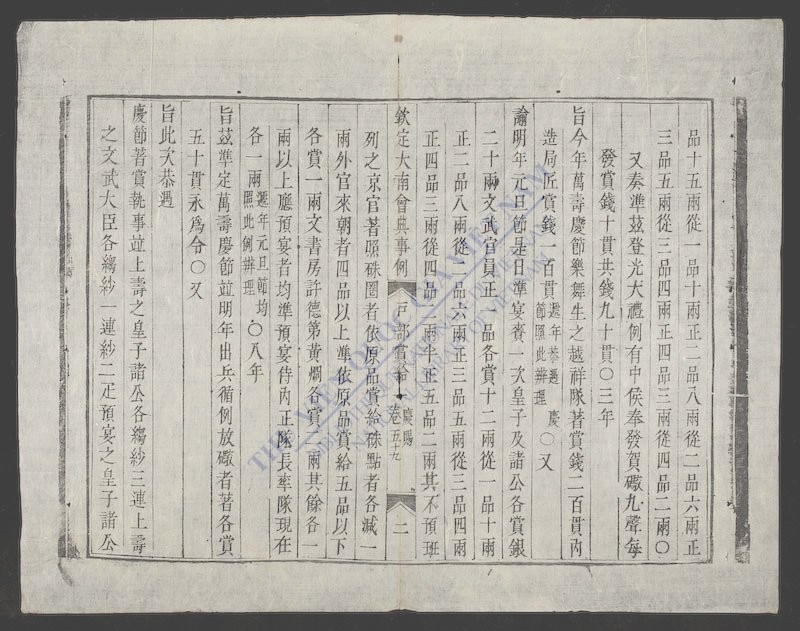 品十五兩從一品十兩正二品八兩從二品六兩正
三品五兩從三品四兩正四品三兩從四品二兩〇
又奏準茲登光大禮例有中侯奉發賀礮九聲每
發賞錢十貫共錢九十貫〇三年
旨今年萬壽慶節樂舞生之越祥隊著賞錢二百貫內
造局匠賞錢一百貫遞年恭遇慶節照此辦理〇又
諭明年元旦節是日準宴賚一次皇子及諸公各賞銀
二十兩文武官員正一品各賞十二兩從一品十兩
正二品八兩從二品六兩正三品五兩從三品四兩
正四品三兩從四品二兩半正五品二兩其不預班
欽定大南會典事例 戶部 賞 慶賜 卷五十九 二
列之京官著照硃圈者依原品賞給硃點者各減一
兩外官來朝者四品以上準依原品賞給五品以下
各賞一兩文書房許德第黃炯各賞二兩其餘各一
兩以上廳預宴者均準預宴侍內正隊長率隊現在
各一兩遞年元旦節均照此例辦理〇八年
旨茲準定萬壽慶節並明年出兵循例放礮者著各賞
五十貫永爲令〇又
旨此次恭遇
慶節著賞執事並上壽之皇子諸公各縐紗三連上壽
之文武大臣各縐紗一連紗二疋預宴之皇子諸公
THE NATIONAL